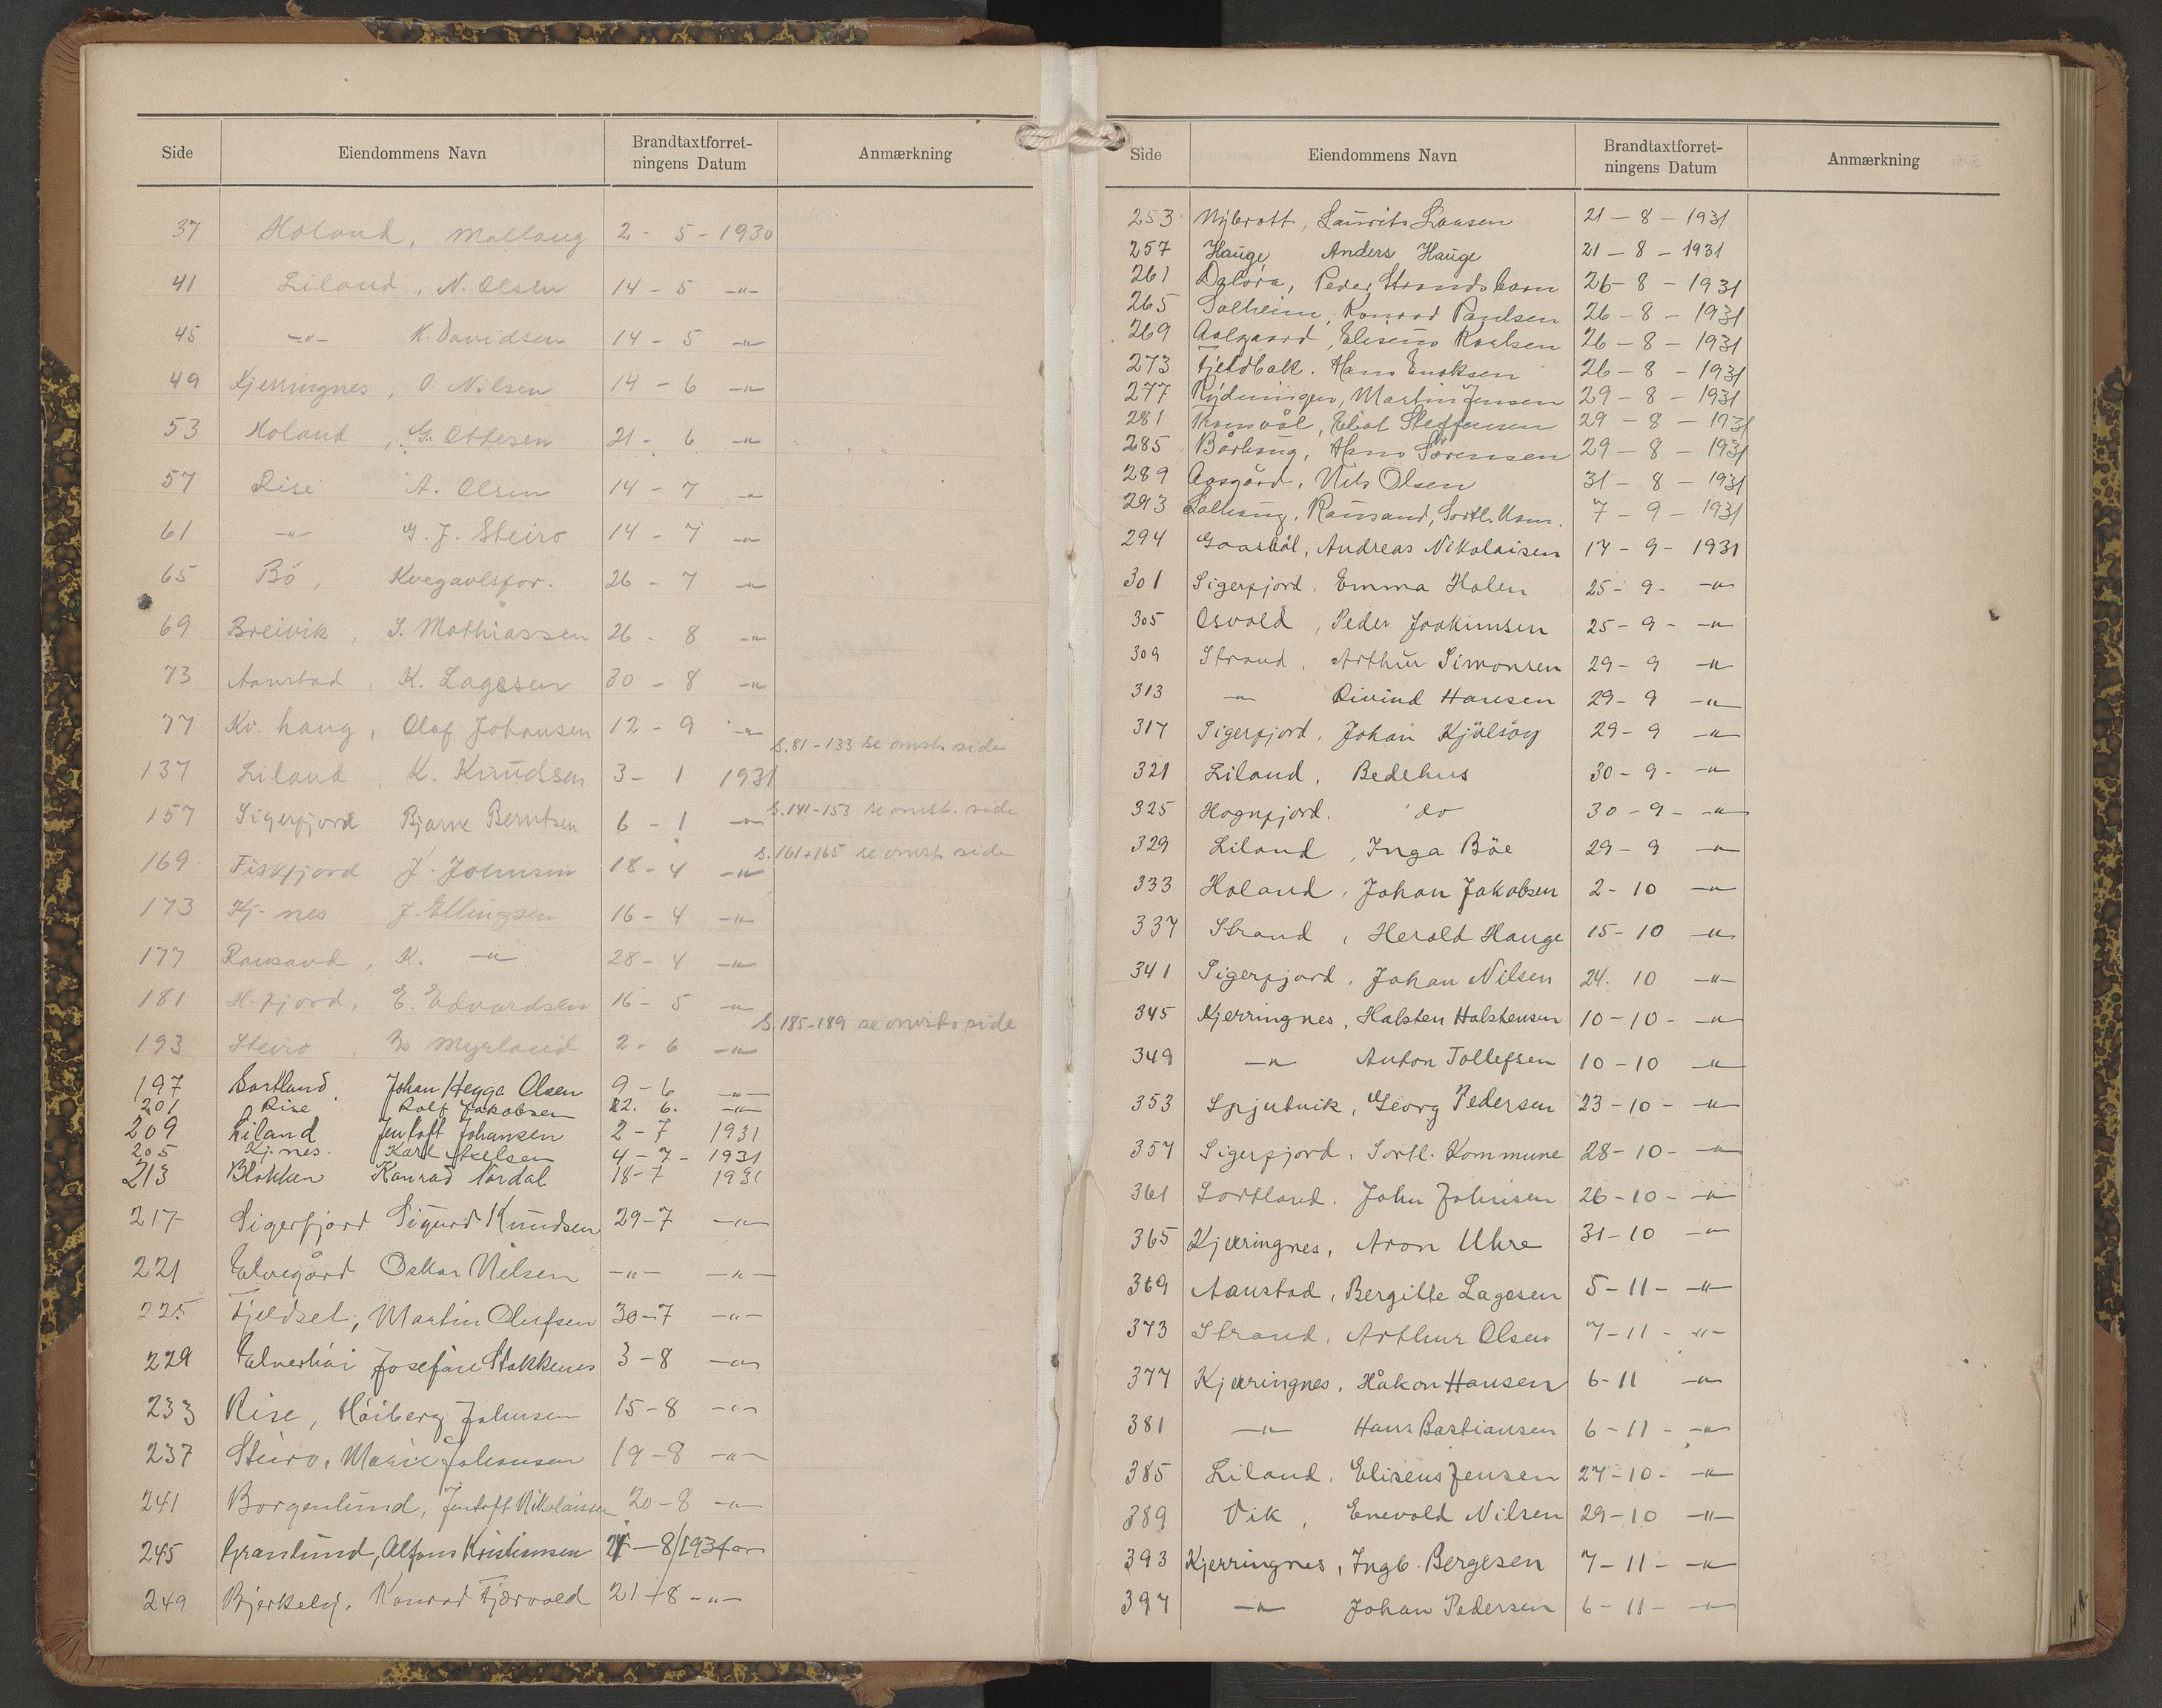 Side Eiendommens Navn Brandtaxtforret-ningens Datum Anmærkning
37 Holand, Mollaug 2 - 5 - 1930
41 Liland, N. Olsen 14 - 5 -"-
45 -"- K. Davidsen 14 - 5 -"-
49 Kjerringnes, O. Nilsen 14 - 6 -"-
53 Holand, G. Ottesen 21 - 6 -"-
57 Rise A. Olsen 14 - 7 -"-
61 -"- G. J. Steiro 14 - 7 -"-
65 Bö, Kvegavlsfor. 26 - 7 -"-
69 Breivik, S. Mathiassen 26 - 8 -"-
73 Aanstad, K. Lagesen 30 - 8 -"-
77 Kv. haug, Olaf Johansen 12 - 9 -"-
S. 81-133 se omst. side
137 Liland, K. Knudsen 3 - 1 1931
157 Sigerfjord Bjarne Berntsen 6 - 1 -"- S. 141-153 se omst. side
S. 161+165 se omst. side
169 Fiskfjord J. Johnsen 18 - 4 -"-
173 Kj-nes J. Ellingsen 16 - 4 -"-
177 Ransand, K. -"- 28 - 4 -"-
181 H. fjord, E. Edvardsen 16 - 5 -"-
S. 185-189 se omst. side
193 Steiro, Myrland 2 - 6 -"-
197 Sortland, Johan Hegge Olsen 9 - 6 -"-
201 Rise Rolf Jakobsen 22. 6. -"-
209 Liland Jentoft Johansen 2 - 7 1931
205 Kj.nes. Karl Axelsen 4 - 7 - 1931
213 Blokken Konrad Nordal 18 - 7 1931
217 Sigerfjord Sigurd Knudsen 29-7 -"-
221 Elvegård Oskar Nilsen -"- -"-
225 Fjeldset, Martin Olufsen 30-7 -"-
229 Josefine Stokkenes 3-8 -"-
233 Rise, Höiberg Johnsen 15-8 -"-
237 Steiro, Marie Johansen 19-8 -"-
241 Borgenlund, Jentoft Nikolaissen 20-8 -"-
245 Granlund, Alfons Kristiansen 21-8/1931
249 Bjerkely, Konrad Fjærvold 21-8 -"-
Side Eiendommens Navn Brandtaxtforret-ningens Datum Anmærkning
253 Nybrott, Laurits Larsen 21 - 8 - 1931
257 Hauge Anders Hauge 21 - 8 - 1931
261 Dalöra, Peder Strandskarn 26 - 8 - 1931
265 Solheim, Konrad Paulsen 26 - 8 - 1931
269 Aalgaard, Eliseus Karlsen 26 - 8 - 1931
273 Fjeldbakk. Hans Enoksen 26 - 8 - 1931
277 Rydningen, Martin Jensen 29 - 8 - 1931
281 Eliot Steffensen 29 - 8 - 1931
285 Bårhaug, Hans Sörensen 29 - 8 - 1931
289 Aasgård, Nils Olsen 31 - 8 - 1931
293 Solhaug, Ransand, Sortl. Kom. 7 - 9 - 1931
294 Gaasbøl, Andreas Nikolaisen 17 - 9 - 1931
301 Sigerfjord, Emma Holen 25 - 9 - -"-
305 Osvold, Peder Joakimsen 25 - 9 - -"-
309 Strand, Arthur Simonsen 29 - 9 -"-
313 -"- Oivind Hansen 29 - 9 -"-
317 Sigerfjord, Johan Kjölsöy 29 - 9 -"-
321 Liland, Bedehus 30 - 9 - -"-
325 Hognfjord. do 30 - 9 - -"-
329 Liland, Inga Böe 29 - 9 -"-
333 Holand, Johan Jakobsen 2 - 10 -"-
337 Strand, Herold Hauge 15 - 10 -"-
341 Sigerfjord, Johan Nilsen 24. 10 -"-
345 Kjerringnes, Halsten Halstensen 10 - 10 - -"-
349 -"- Anton Tollefsen 10 - 10 -"-
353 Spjutvik, Georg Pedersen 23 - 10 - -"-
357 Sigerfjord, Sortl. Kommune 28 - 10 - -"-
361 Sortland, John Johnsen 26 - 10 - -"-
365 Kjerringnes, Aron Uhre 31 - 10 -"-
369 Aanstad, Bergitte Lagesen 5 - 11 - -"-
373 Strand, Arthur Olsen 7 - 11 - -"-
377 Kjerringnes, Håkon Hansen 6 - 11 -"-
381 -"- Hans Bastiansen 6 - 11 - -"-
385 Liland, Eliseus Jensen 27 - 10 - -"-
389 Vik, Enevold Nilsen 29 - 10 -"-
393 Kjerringnes, Ingb. Bergesen 7 - 11 - -"-
397 -"- Johan Pedersen 6 - 11 - -"-